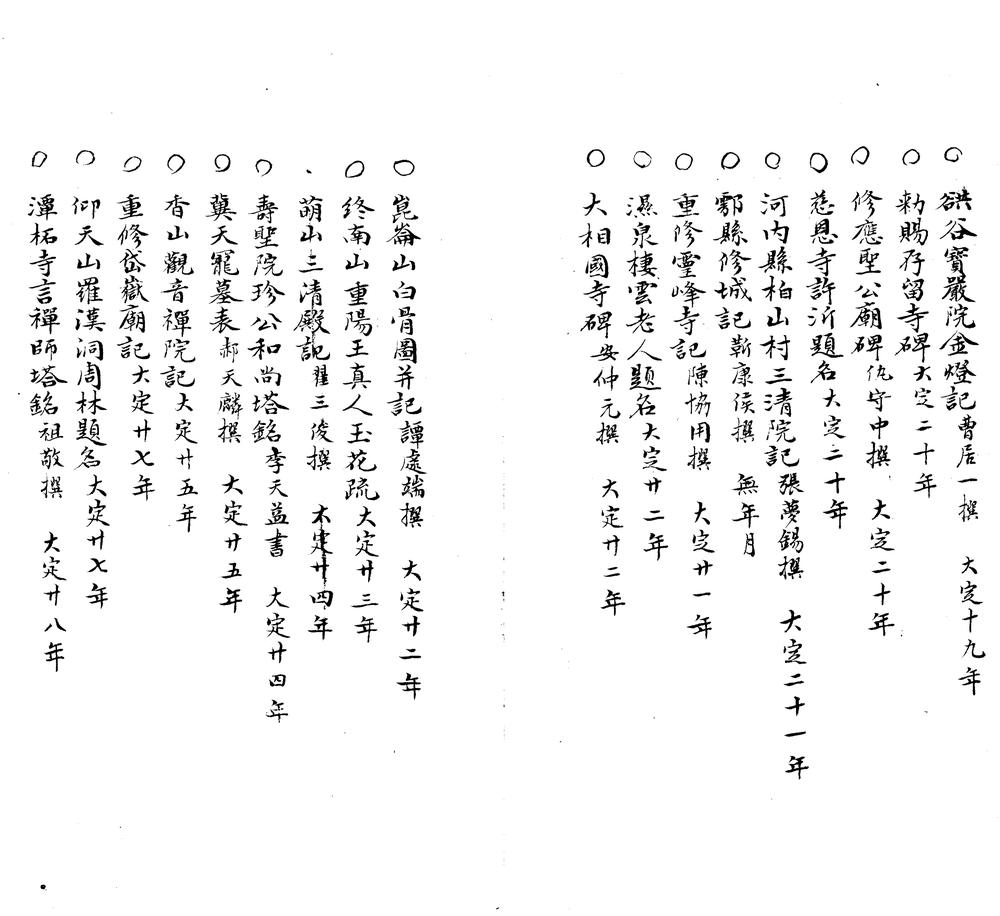 ○谼谷寶嚴院金燈記曹居一撰　大定十九年
○勑賜存留寺碑大定二十年
○修應聖公廟碑仇守中撰　大定二十年
○慈恩寺許沂題名大定二十年
○河內縣柏山村三清院記張夢錫撰　大定二十一年
○鄠縣修城記靳康侯撰　無年月
○重修靈峰寺記陳協用撰　大定廿一年
○濕泉棲雲老人題名大定廿二年
○大相國寺碑安仲元撰　大定廿二年
○崑崙山白骨圖并記譚處端撰　大定廿二年
○終南山重陽王真人玉花疏大定廿三年
萌山三清殿記翟三俊撰　大定廿四年
○壽聖院珍公和尚塔銘李天益書　大定廿四年
○冀天寵墓表郝天麟撰　大定廿五年
○香山觀音禪院記大定廿五年
○重修岱嶽廟記大定廿七年
○仰天山羅漢洞周林題名大定廿七年
○潭柘寺言禪師塔銘祖敬撰　大定廿八年